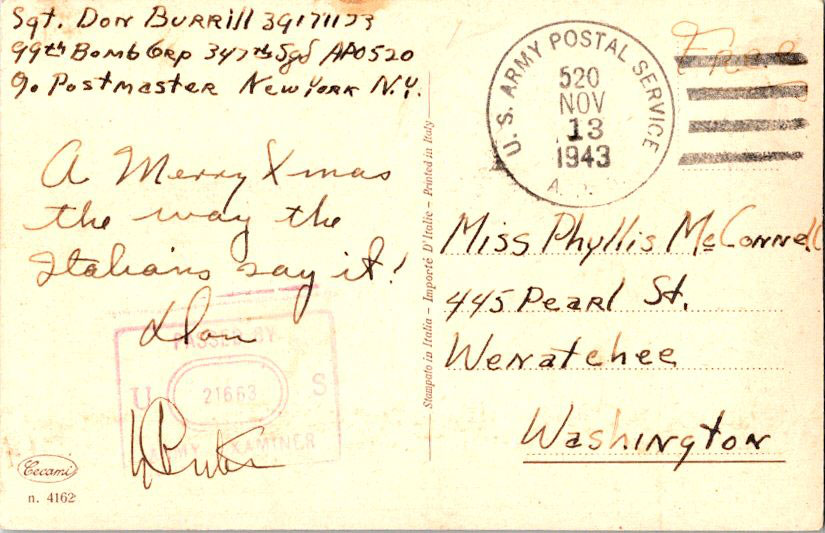 Sgt. Don Burrill 39171123
99th Bomb Grp 347th Sqd APO 520
℅ Postmaster New York N.Y.
A Merry Xmas
the way the
Italians say it!
Don
PASSED BY
U 21663 S
ARMY EXAMINER
Cecami
n. 4162
Stampato in Italia – Importé D'Italie – Printed in Italy
U. S. ARMY POSTAL SERVICE
520
NOV
13
1943
Free
Miss Phyllis McConnell
445 Pearl St.
Wenatchee
Washington